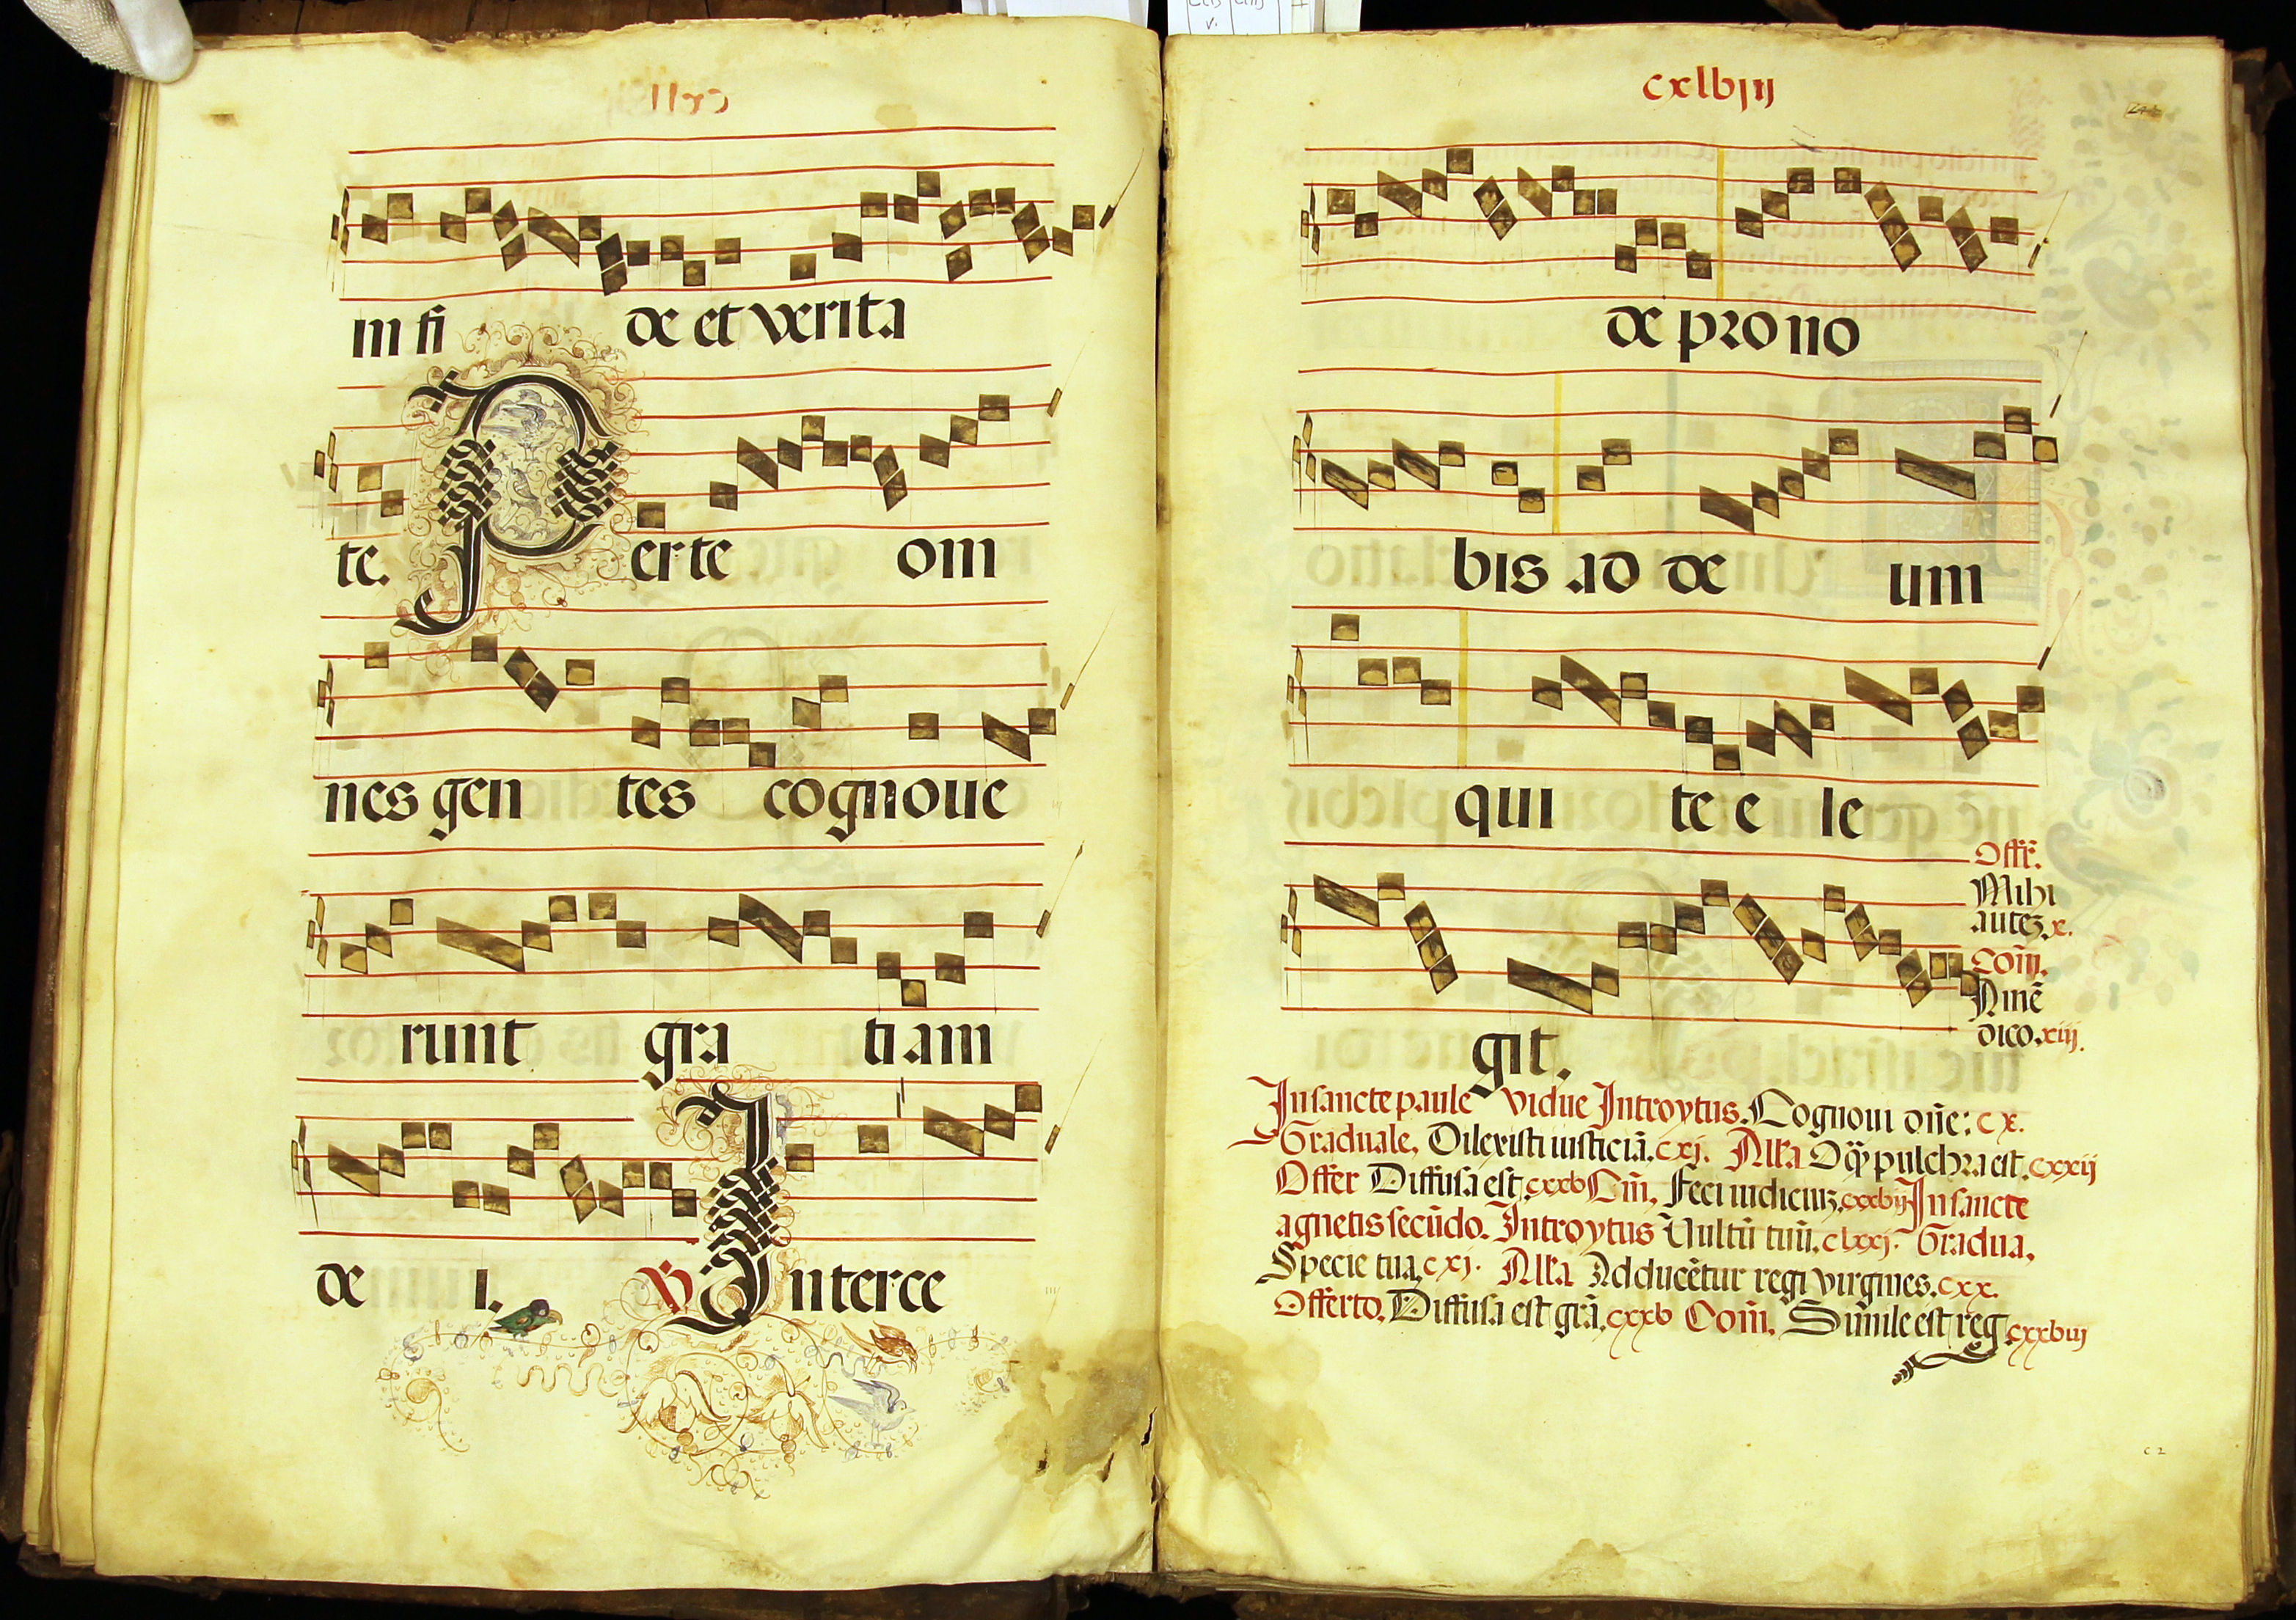 in fi de et verita
te. Per te om
nes gen tes cognoue
runt gra tiam
de i. ℣ Interce
cxlbiij
de pro no
bis ad de um
qui te e le
git.
Offr̃.
Mihi
autez. x.
Com̃.
Amẽ
dico. xiij.
In sancte paule vidue Introytus. Cognoui dñe: cx.
Graduale. Dilexisti iusticiã. cxj. Alla
pulchra est. cxxij
Offer Diffusa est. cxxb Cm̃. Feci iudiciuz. cxxbij In sancte
agnetis secũdo. Introytus Vultũ tuũ. clxxj. Gradua.
Specie tua. cxj. Alla Adducẽtur regi virgines. cxx.
Offerto. Diffusa est grã. cxxb Com̃. Simile est reg. cxxbiij